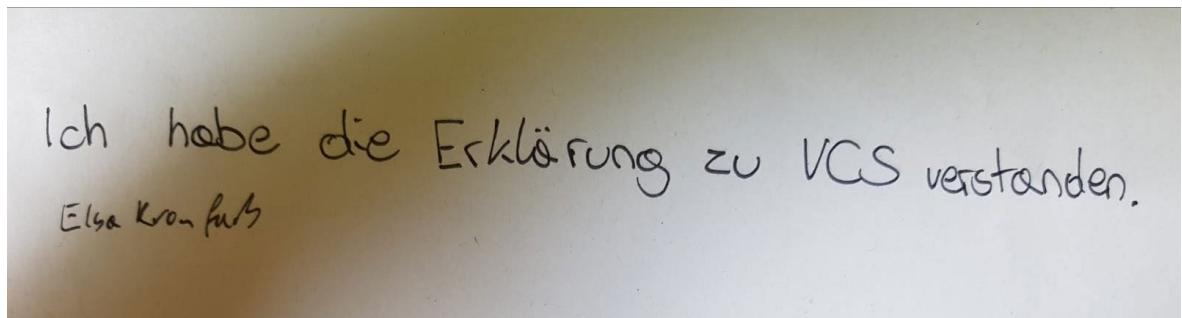 Ich habe die Erklärung zu VCS verstanden.
Elsa Kromfuß